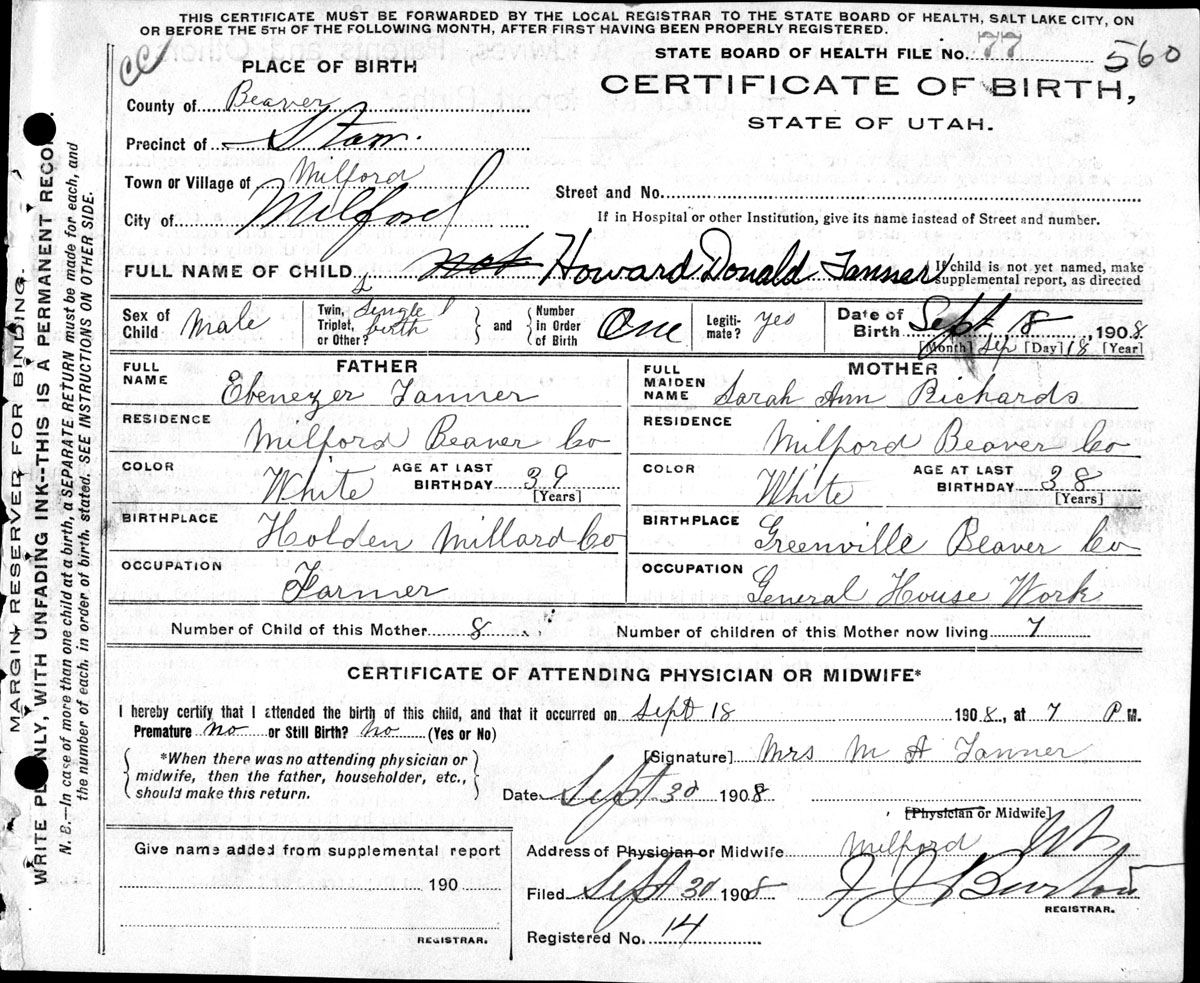 THIS CERTIFICATE MUST BE FORWARDED BY THE LOCAL REGISTRAR TO THE STATE BOARD OF HEALTH, SALT LAKE CITY, ON
OR BEFORE THE 5TH OF THE FOLLOWING MONTH, AFTER FIRST HAVING BEEN PROPERLY REGISTERED.
STATE BOARD OF HEALTH FILE No. 77 560
PLACE OF BIRTH
CERTIFICATE OF BIRTH,
STATE OF UTAH.
County of Beaver
Precinct of Star
Town or Village of Milford
Street and No.
City of Milford
If in Hospital or other Institution, give its name instead of Street and number.
FULL NAME OF CHILD not Howard Donald Tanner { If child is not yet named, make
supplemental report, as directed
Sex of Child Male
Twin, Triplet, or Other? Single birth
and Number in Order of Birth One
Legitimate? Yes
Date of Birth Sept 18, 1908
[Month] Sep [Day] 18 [Year]
FATHER
MOTHER
FULL NAME Ebenezer Tanner
FULL MAIDEN NAME Sarah Ann Richards
RESIDENCE Milford Beaver Co
RESIDENCE Milford Beaver Co
COLOR White AGE AT LAST BIRTHDAY 39 [Years]
COLOR White AGE AT LAST BIRTHDAY 38 [Years]
BIRTHPLACE Holden Millard Co
BIRTHPLACE Greenville Beaver Co
OCCUPATION Farmer
OCCUPATION General House Work
Number of Child of this Mother 8
Number of children of this Mother now living 7
CERTIFICATE OF ATTENDING PHYSICIAN OR MIDWIFE*
I hereby certify that I attended the birth of this child, and that it occurred on Sept 18 1908, at 7 P M.
Premature no or Still Birth? no (Yes or No)
*When there was no attending physician or
midwife, then the father, householder, etc.,
should make this return.
[Signature] Mrs M A Tanner
Date Sept 30 1908
[Physician or Midwife]
Give name added from supplemental report
190
REGISTRAR.
Address of Physician or Midwife Milford Ut
Filed Sept 30 1908 F J Burton
REGISTRAR.
Registered No. 14
MARGIN RESERVED FOR BINDING.
WRITE PLAINLY, WITH UNFADING INK--THIS IS A PERMANENT RECORD.
N. B.—In case of more than one child at a birth, a SEPARATE RETURN must be made for each, and
the number of each, in order of birth, stated. SEE INSTRUCTIONS ON OTHER SIDE.